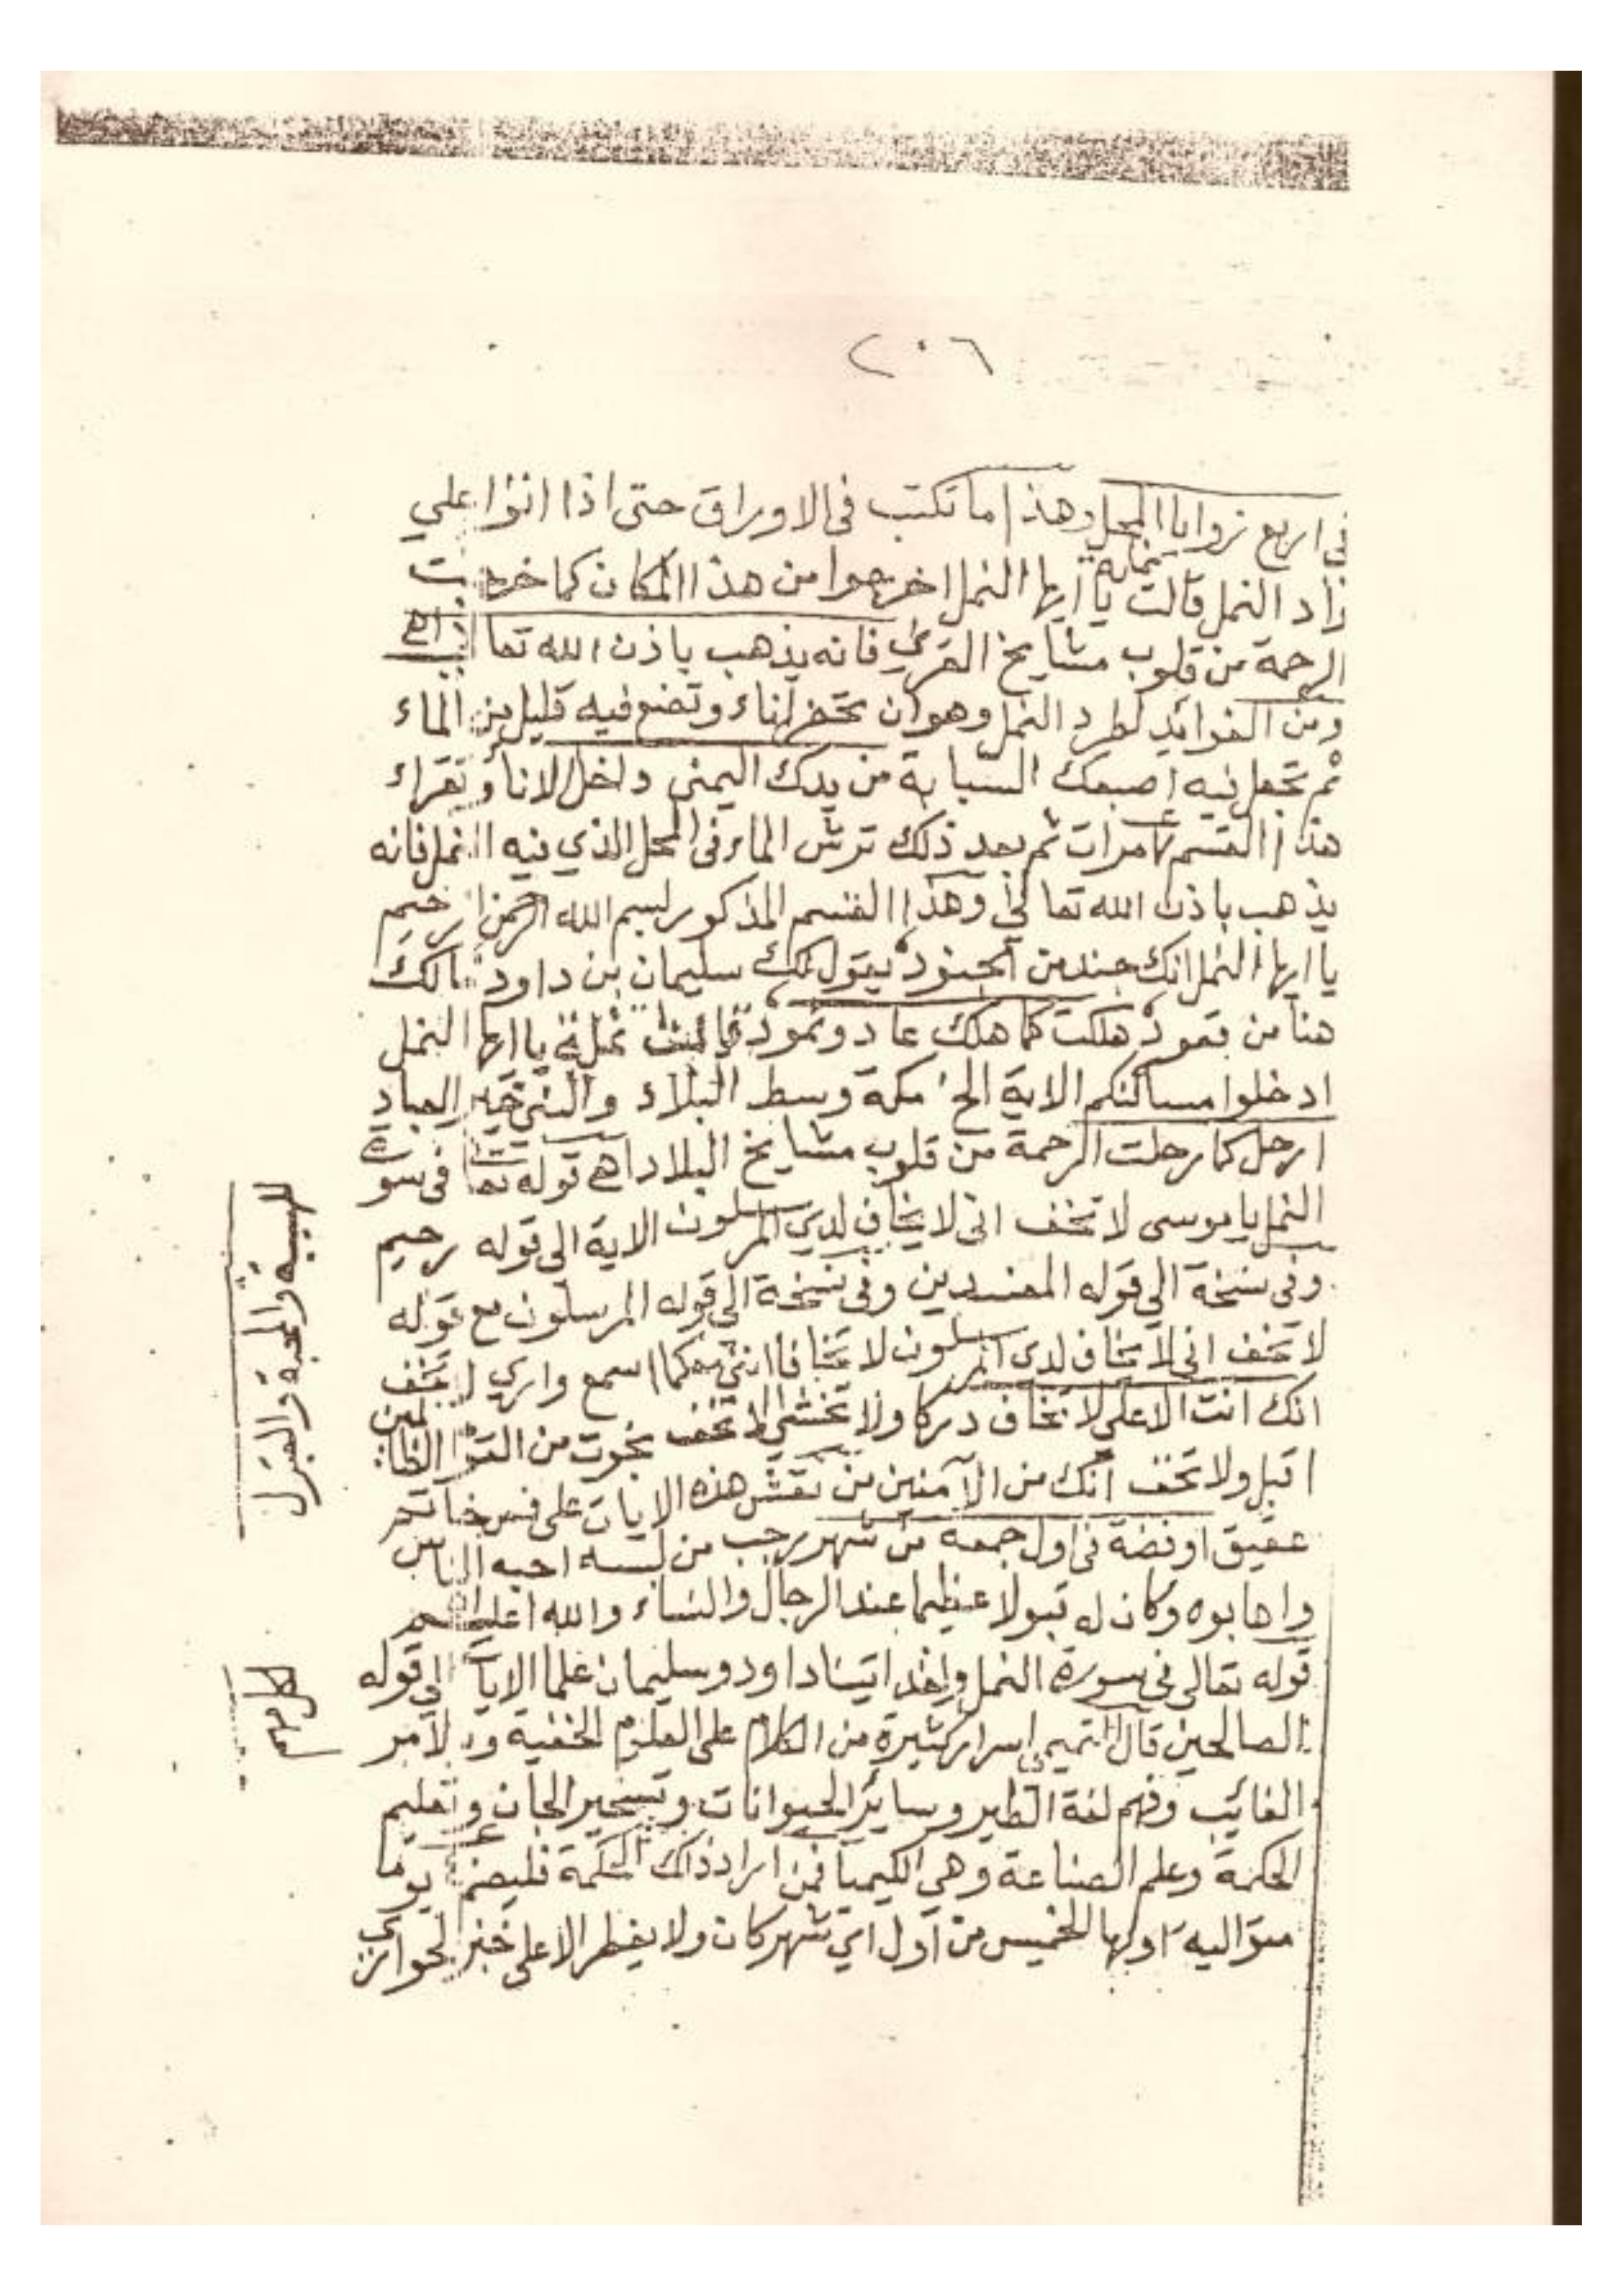 ٢٠٦
في اربع زوايا المحل وهذا ما تكتب فى الاوراق حتى اذا اتوا على
واد النمل قالت نملة يا ايها النمل اخرجوا من هذا المكان كما خرجت
الرحمة من قلوب مشايخ القرى فانه يذهب باذن الله تعا
ومن الفوائد لطرد النمل وهو ان تحضر اناء وتضع فيه قليل من الماء
ثم تجعل فيه اصبعك السبابة من يدك اليمنى داخل الاناء وتقراء
هذا القسم مرات ثم بعد ذلك ترش الماء فى المحل الذي فيه النمل فانه
يذهب باذن الله تعالى وهذا القسم المذكور بسم الله الرحمن الرحيم
يا ايها النمل انك جند من الجنود يقول لك سليمان بن داود مالك
هنا من قعود هلكت كما هلك عاد وثمود قالت نملة يا ايها النمل
ادخلوا مساكنكم الاية الخ مكة وسط البلاد والنبي خير العباد
ارحل كما رحلت الرحمة من قلوب مشايخ البلاد اهى قوله تعا فى سورة
النمل يا موسى لا تخف انى لا يخاف لدي المرسلون الاية الى قوله رحيم
وفى نسخة الى قوله المفسدين وفى نسخة الى قوله المرسلون مع قوله
لا تخف انى لا يخاف لدى المرسلون لا تخافا اننى معكما اسمع وارى لا تخف
انك انت الاعلى لا تخاف دركا ولا تخشى لا تخف نجوت من القوم الظالمين
اقبل ولا تخف انك من الآمنين من نقش هذه الايات على فص خاتم
عقيق او فضة فى اول جمعة من شهر رجب من لبسه احبه الناس
واهابوه وكان له قبولا عظيما عند الرجال والنساء والله اعلم
قوله تعالى فى سورة النمل ولقد اتينا داود وسليمان علما الايات الى قوله
الصالحين قال التميمى اسرار كثيرة من الكلام على العلوم الخفية والامر
الغائب وفهم لغة الطير وسائر الحيوانات وتسخير الجان وتعليم
الحكمة وعلم الصناعة وهى الكيميا فمن اراد ذلك الحكمة فليصم يوما
متواليه اولها الخميس من اول اي شهر كان ولا يفطر الا على خبز الحوارى
للهيبة والمحبة والقبول